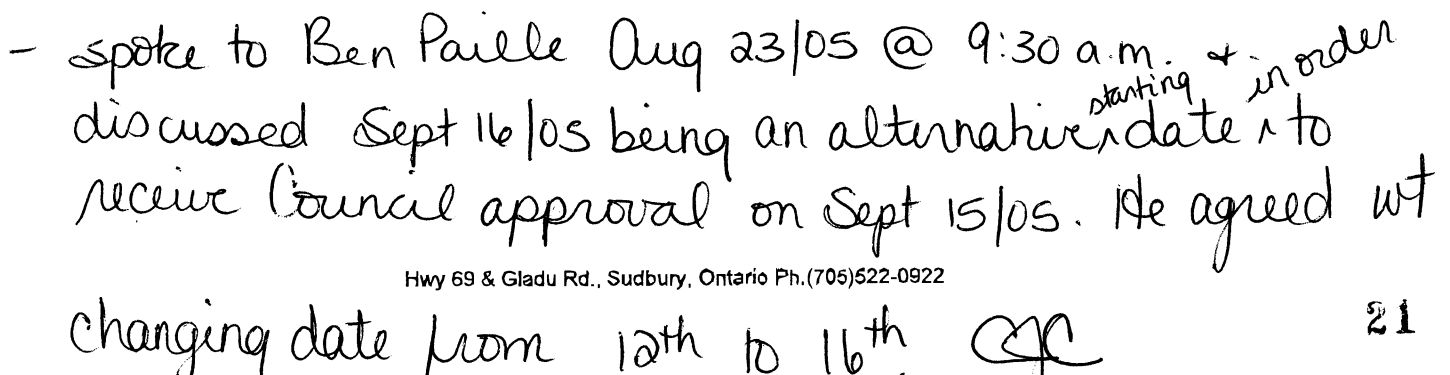 - spoke to Ben Paille Aug 23/05 @ 9:30 a.m. +
discussed Sept 16/05 being an alternative ^ starting date ^ in order to
receive Council approval on Sept 15/05. He agreed wt
Hwy 69 & Gladu Rd., Sudbury, Ontario Ph.(705)522-0922
changing date from 12th to 16th.
21